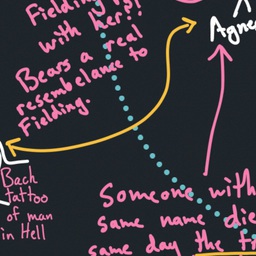 Fielding
with her!!
Bears a real
resembelance to
Fielding.
Back
tattoo
of man
in Hell
Someone with
same name
same day the